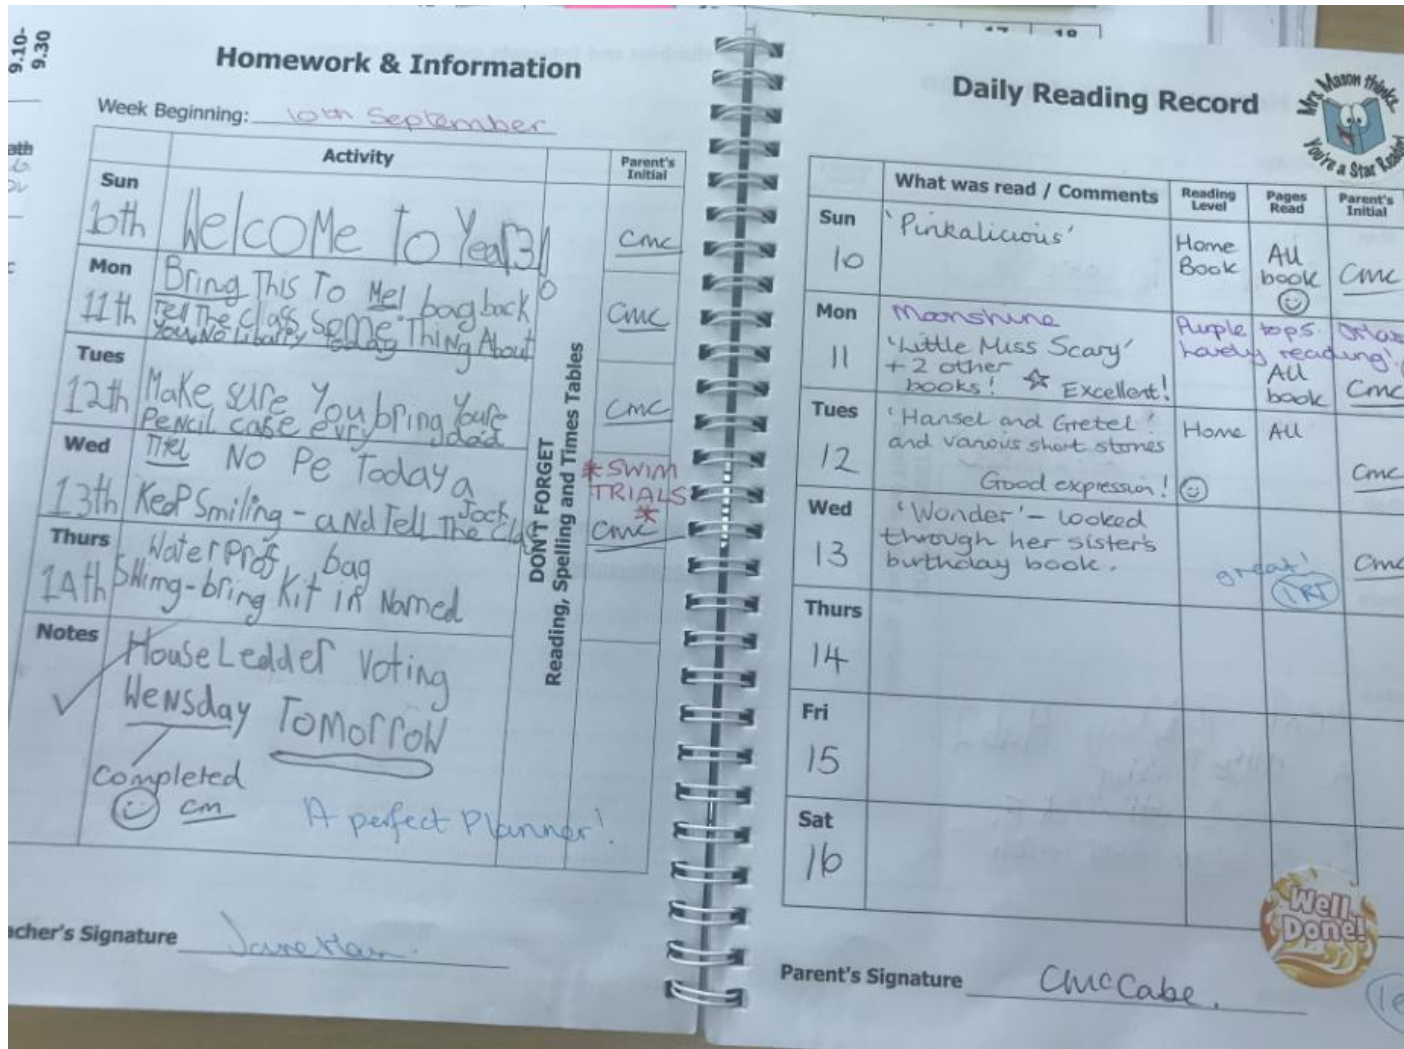 9.10-
9.30
Homework & Information
Week Beginning: 10th September
Activity
Parent's
Initial
Sun
10th
Welcome To Year3!
cmc
Mon
11th
Bring This To Me! bag back
Tell The class some Thing About
You, No Libarry Today
cmc
Tues
12th
Make sure You bring Youre
Pencil case evry
cmc
Wed
13th
No Pe Today
Keep Smiling - and Tell The Clas
Jock
*SWIM
TRIALS
*
cmc
Thurs
14th
Water Prof bag
Swimg-bring Kit in Named
Notes
House Ledder Voting
Wensday Tomorrow
completed
cm
A perfect Planner!
DON'T FORGET
Reading, Spelling and Times Tables
acher's Signature
17 18
Daily Reading Record
Mrs. Mason thinks
You're a Star Reader!
What was read / Comments
Reading
Level
Pages
Read
Parent's
Initial
Sun
10
'Pinkalicious'
Home
Book
All
book
cmc
Mon
11
Moonshine
Purple top5.
Lovely reading!
'Little Miss Scary'
+ 2 other
books! Excellent!
All
book
cmc
Tues
12
'Hansel and Gretel'
and various short stories
Good expression!
Home
All
cmc
Wed
13
'Wonder' - looked
through her sister's
birthday book.
great!
cmc
Thurs
14
Fri
15
Sat
16
Well
Done!
Parent's Signature CMcCabe.